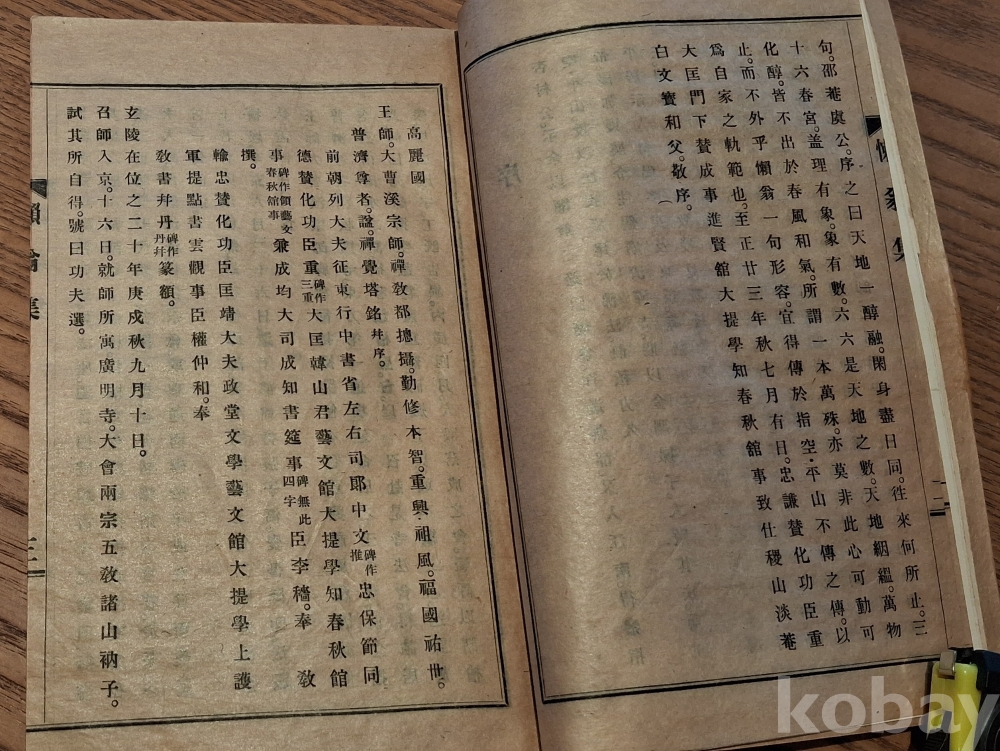 懶翁集
二
句。邵菴虞公。序之曰天地一醇融。閑身盡日同。徃來何所止。三
十六春宮。盖理有象。象有數。六六是天地之數。天地絪縕。萬物
化醇。皆不出於春風和氣。所謂一本萬殊。亦莫非此心可動可
止。而不外乎懶翁一句形容。宜得傳於指空·平山不傳之傳。以
爲自家之軌範也。至正廿三年秋七月有日。忠謙贊化功臣重
大匡門下贊成事進賢館大提學知春秋舘事致仕稷山淡菴
白文寶和父。敬序。
高麗國
王師。大曹溪宗師。禪敎都摠攝。勤修本智。重興祖風。福國祐世。
普濟尊者。諡禪覺塔銘 幷序。
前朝列大夫征東行中書省左右司郞中文 碑作推 忠保節同
德贊化功臣重 碑作三重 大匡韓山君藝文館大提學知春秋館
事 碑作領藝文春秋館事 兼成均大司成知書筵事 碑無此四字 臣李穡。奉 敎
撰。
輸忠贊化功臣匡靖大夫政堂文學藝文館大提學上護
軍提點書雲觀事臣權仲和。奉
敎書幷丹 碑作丹幷 篆額。
玄陵在位之二十年庚戌秋九月十日。
召師入京。十六日。就師所寓廣明寺。大會兩宗五敎諸山衲子。
試其所自得。號曰功夫選。
懶翁集
三
kobay